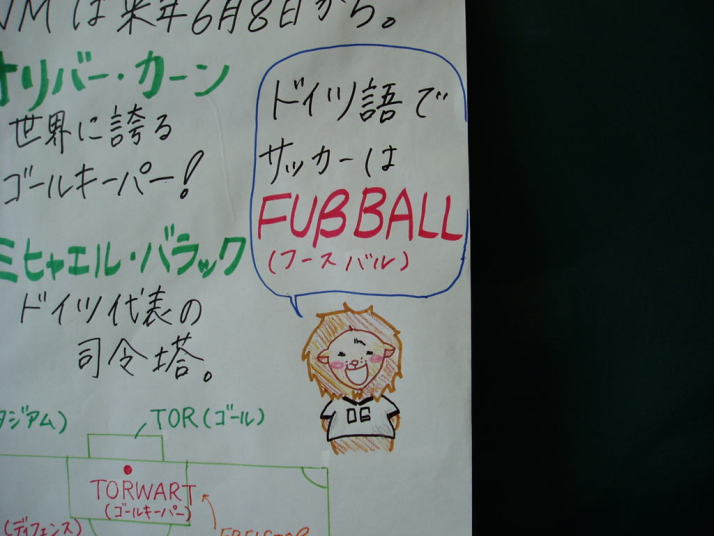 WMは来年6月8日から。
オリバー・カーン
世界に誇る
ゴールキーパー!
ミヒャエル・バラック
ドイツ代表の
司令塔。
ドイツ語で
サッカーは
FUßBALL
(フースバル)
06
タジアム)
TOR(ゴール)
TORWART
(ゴールキーパー)
(ディフェンス)